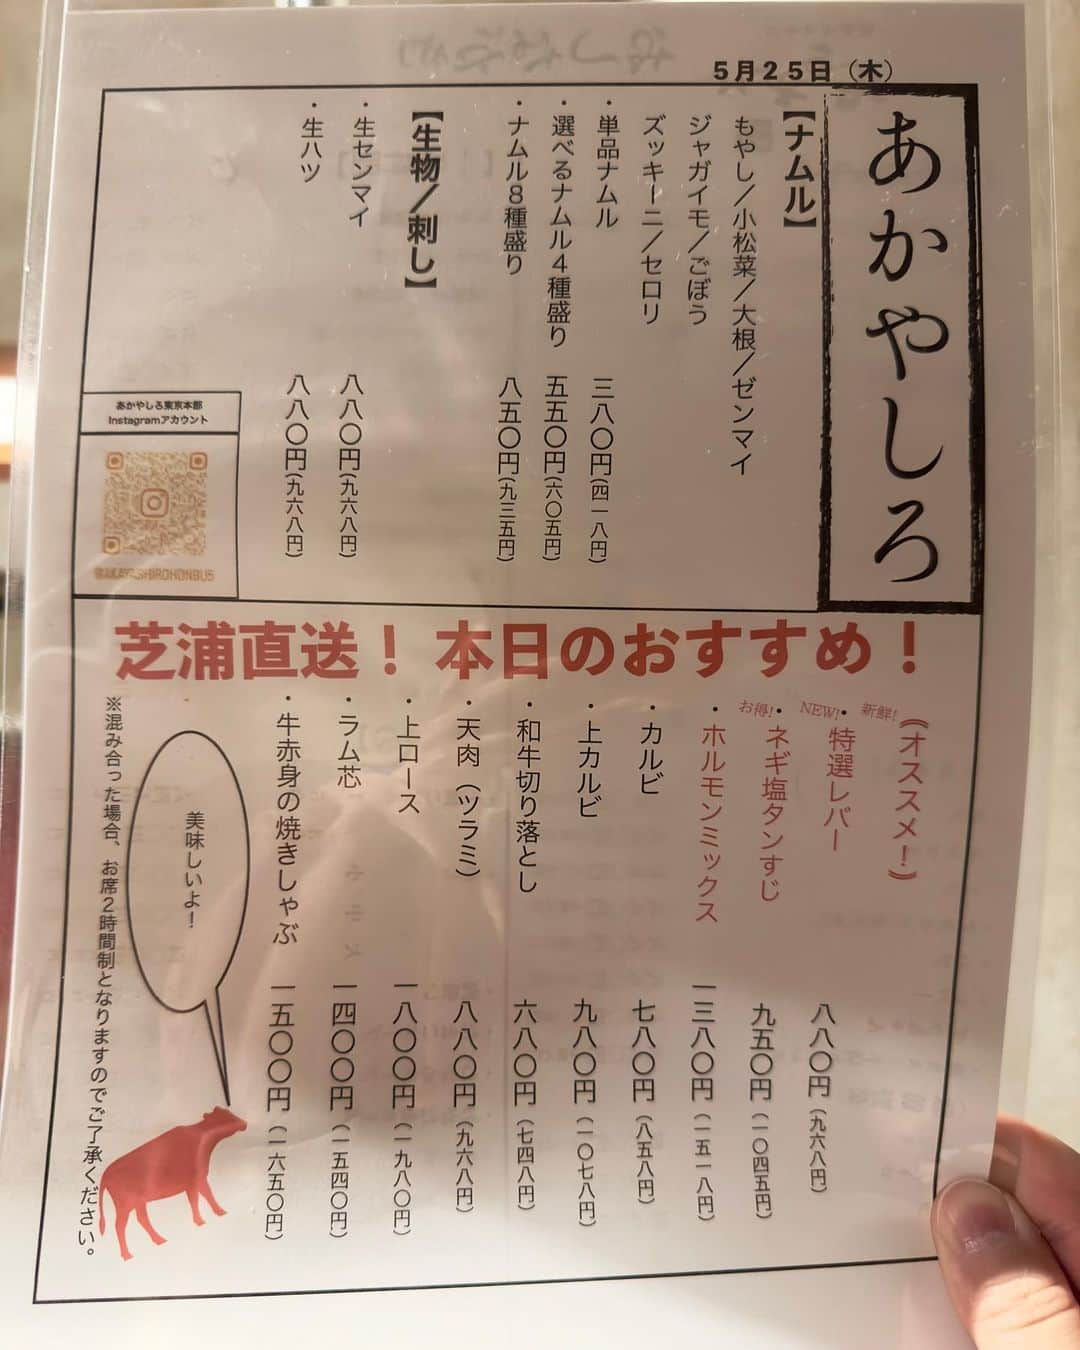 5月25日（木）
あかやしろ
【ナムル】
もやし／小松菜／大根／ゼンマイ
ジャガイモ／ごぼう
ズッキーニ／セロリ
・単品ナムル 三八〇円(四一八円)
・選べるナムル４種盛り 五五〇円(六〇五円)
・ナムル８種盛り 八五〇円(九三五円)
【生物／刺し】
・生センマイ 八八〇円(九六八円)
・生ハツ 八八〇円(九六八円)
あかやしろ東京本部
Instagramアカウント
@AKAYASHIROHONBU5
芝浦直送！本日のおすすめ！
《オススメ！》
新鮮!
・特選レバー 八八〇円（九六八円）
NEW!
・ネギ塩タンすじ 九五〇円（一〇四五円）
お得!
・ホルモンミックス 一三八〇円（一五一八円）
・カルビ 七八〇円（八五八円）
・上カルビ 九八〇円（一〇七八円）
・和牛切り落とし 六八〇円（七四八円）
・天肉（ツラミ） 八八〇円（九六八円）
・上ロース 一八〇〇円（一九八〇円）
・ラム芯 一四〇〇円（一五四〇円）
・牛赤身の焼きしゃぶ 一五〇〇円（一六五〇円）
美味しいよ！
※混み合った場合、お席２時間制となりますのでご了承ください。